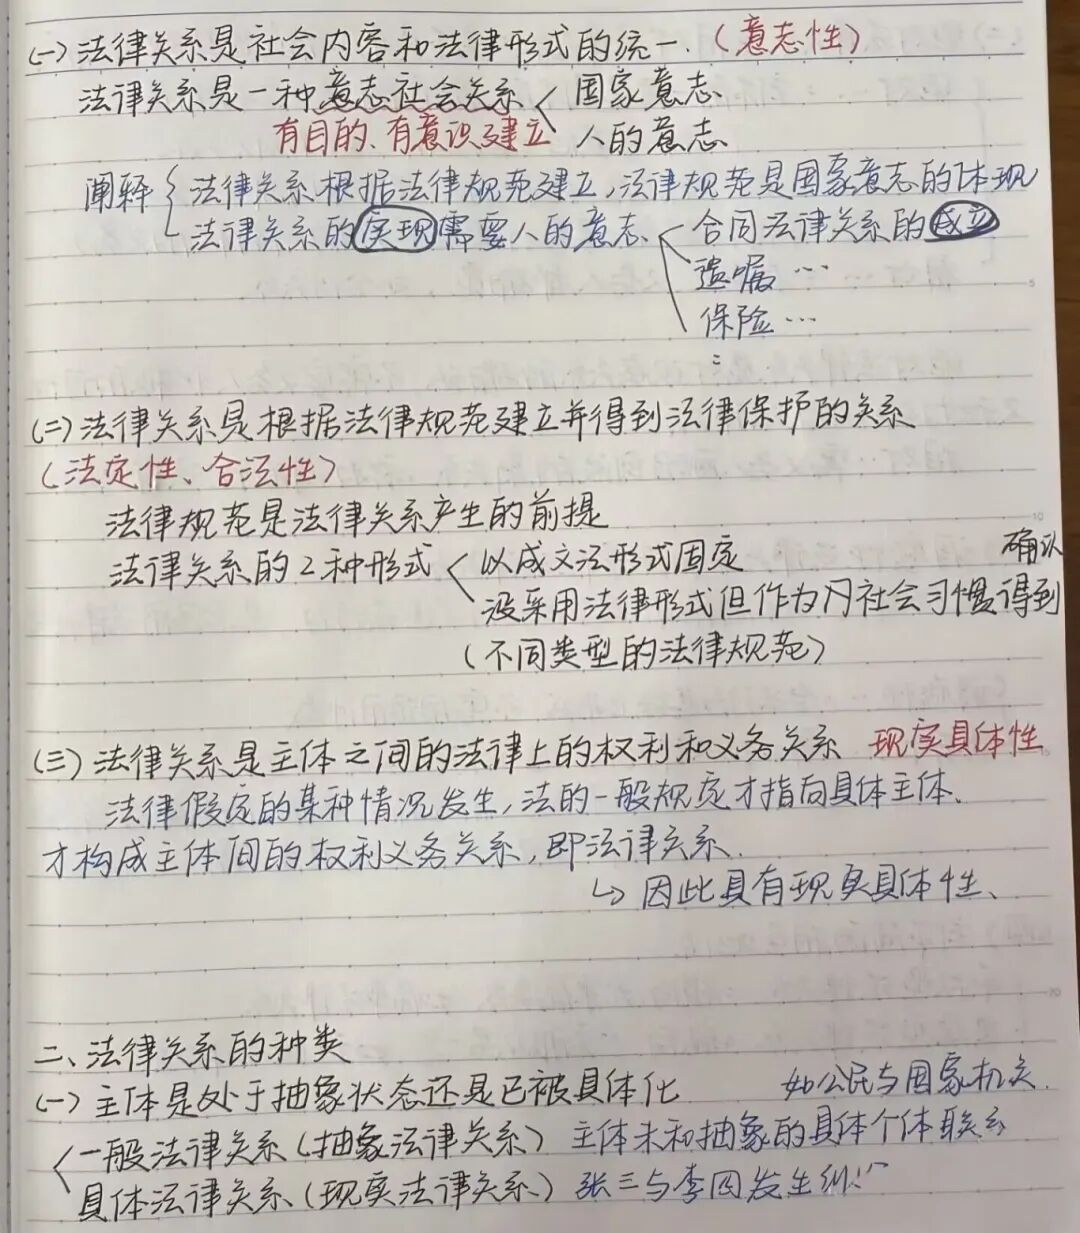 (一) 法律关系是社会内容和法律形式的统一.（意志性）
法律关系是一种意志社会关系 国家意志
有目的、有意识建立 人的意志
阐释 法律关系根据法律规范建立,法律规范是国家意志的体现
法律关系的实现需要人的意志 合同法律关系的成立
遗嘱 …
保险 …
:
(二) 法律关系是根据法律规范建立并得到法律保护的关系
（法定性、合法性）
法律规范是法律关系产生的前提
法律关系的2种形式 以成文法形式固定
没采用法律形式但作为 社会习惯得到确认
（不同类型的法律规范）
(三) 法律关系是主体之间的法律上的权利和义务关系 现实具体性
法律假定的某种情况发生,法的一般规定才指向具体主体、
才构成主体间的权利义务关系,即法律关系.
↳ 因此具有现实具体性、
二、法律关系的种类
(一) 主体是处于抽象状态还是已被具体化 如公民与国家机关.
一般法律关系（抽象法律关系） 主体未和抽象的具体个体联系
具体法律关系（现实法律关系） 张三与李四发生